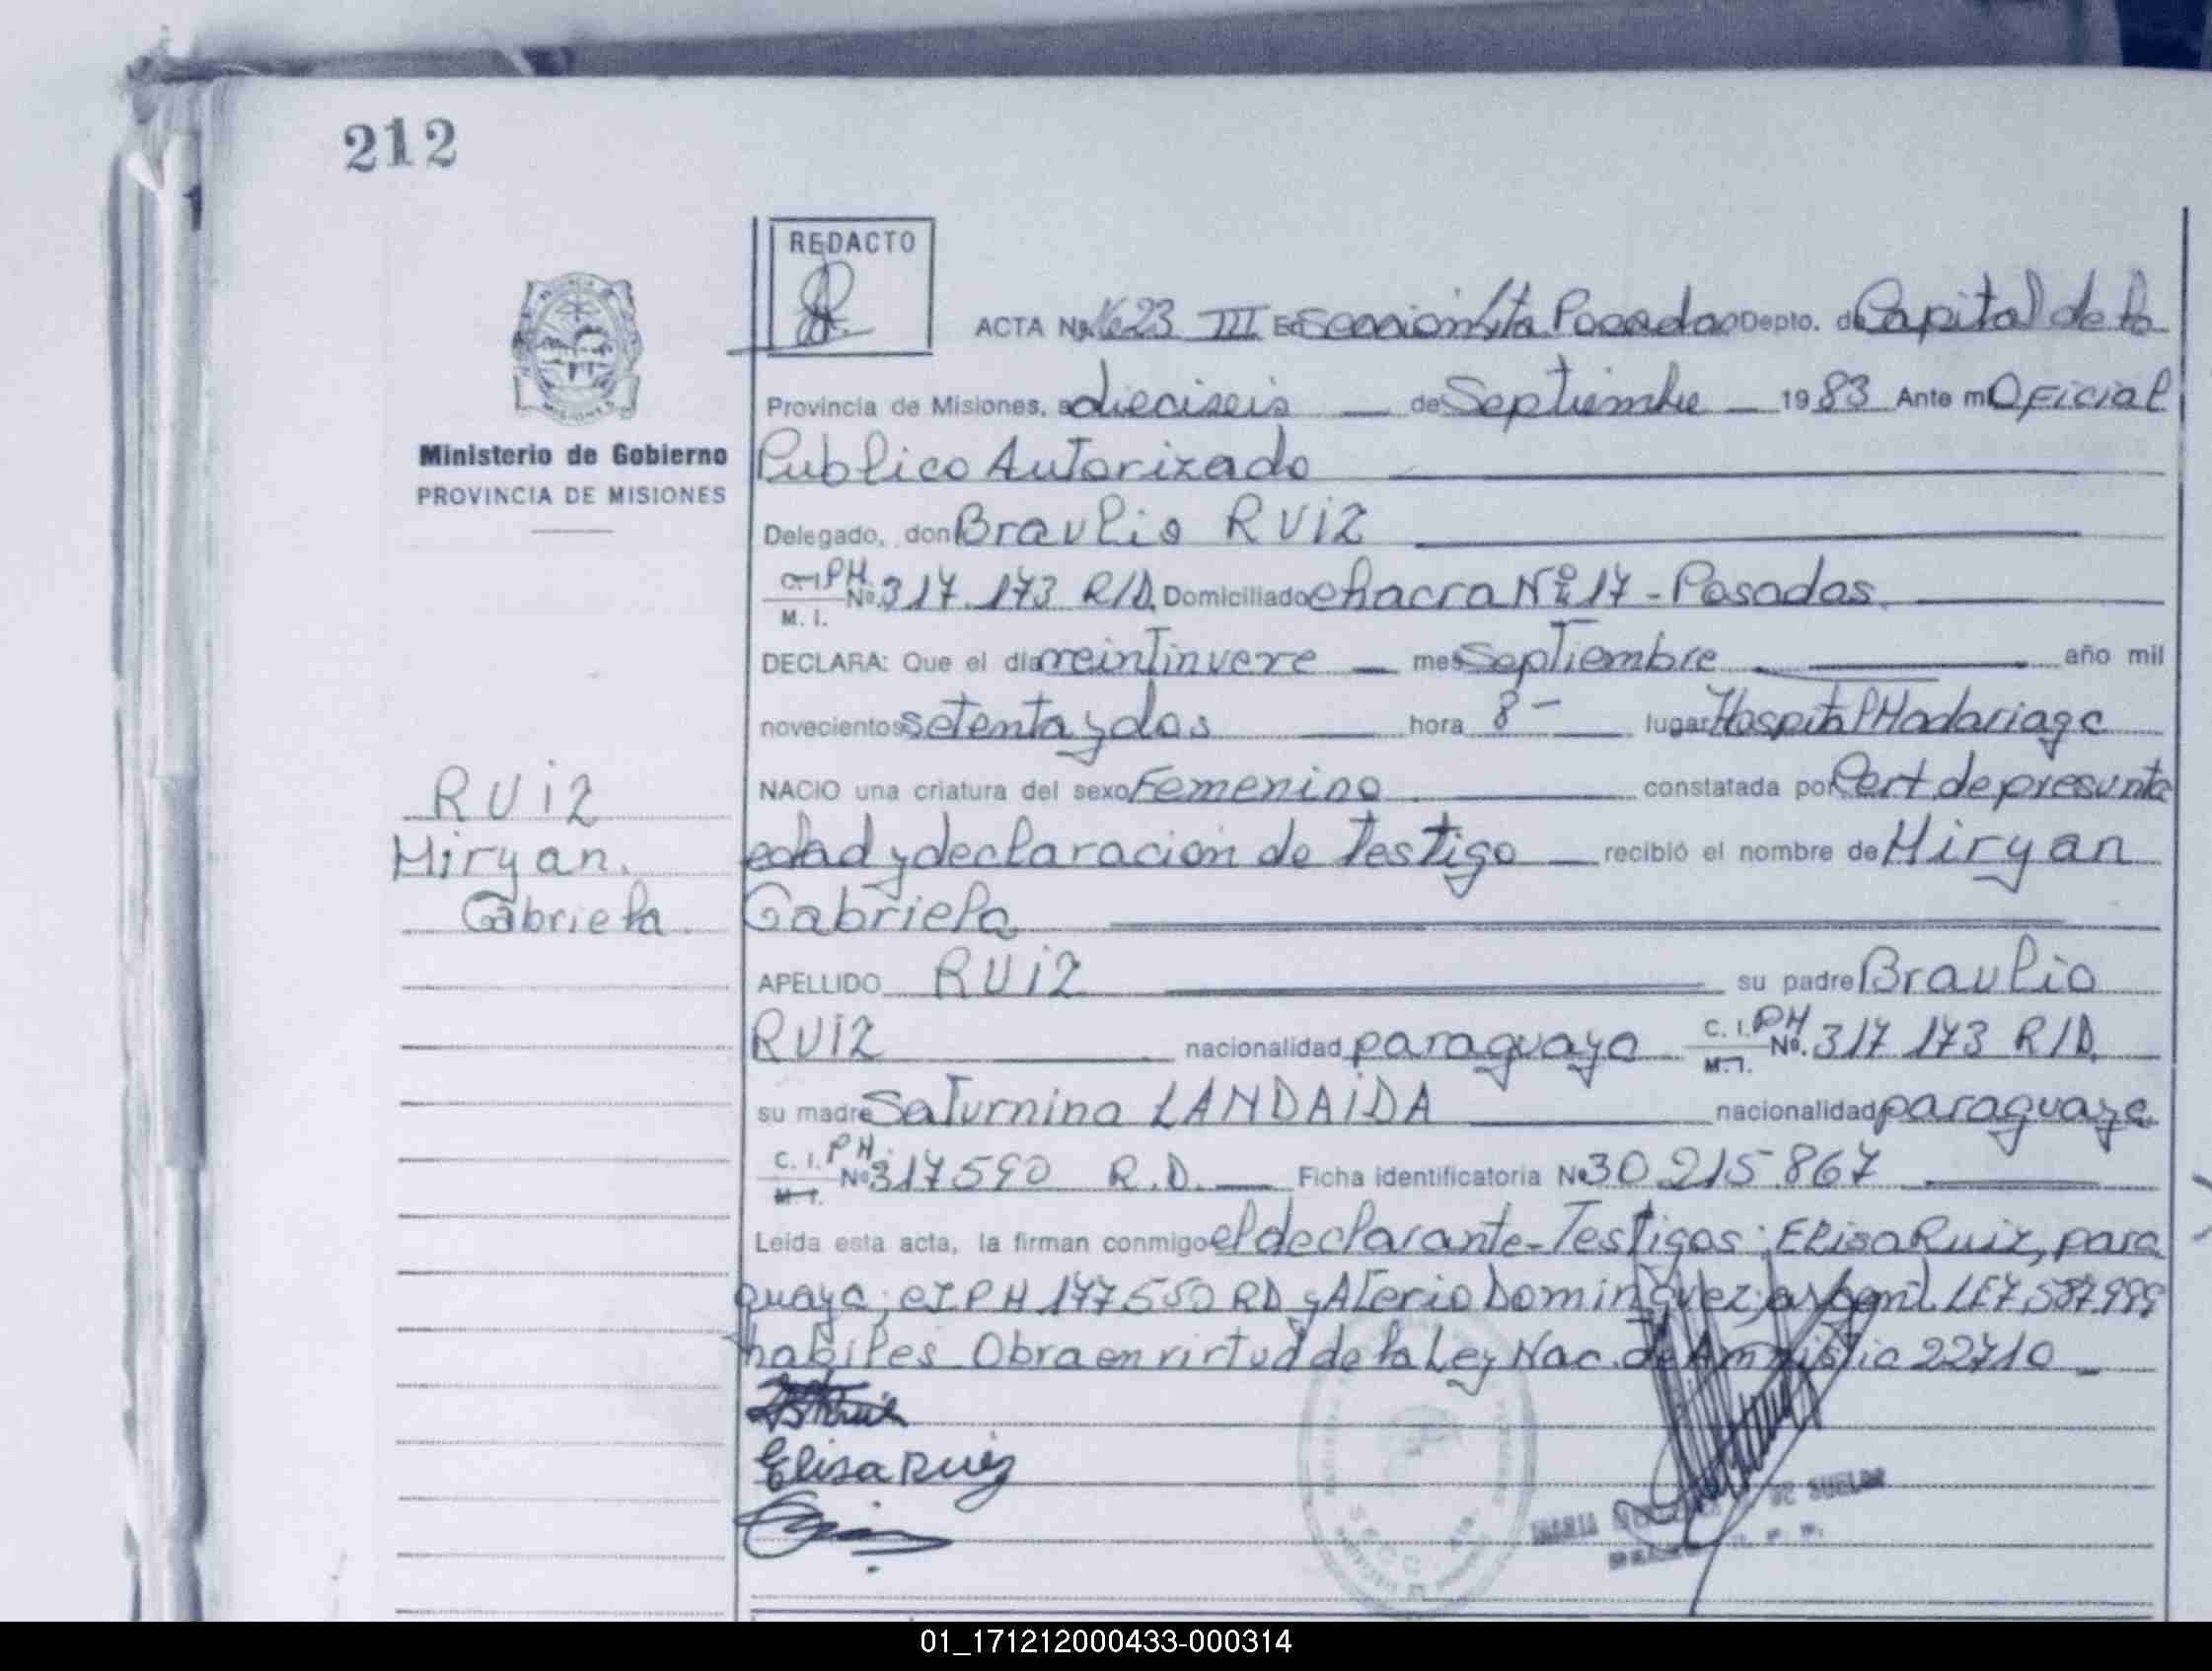 212
REDACTO
ACTA No. 1623 III En Sección 4ta Posadas Depto. de Capital de la
Provincia de Misiones, a dieciseis de Septiembre 1983 Ante mi Oficial
Ministerio de Gobierno
Publico Autorizado
PROVINCIA DE MISIONES
Delegado, don Braulio RUiZ
C.I. PH No. 317.173 R/D. Domiciliado chacra Nº 17 - Posadas
M. I.
DECLARA: Que el día veintinueve mes Septiembre año mil
novecientos setenta y dos hora 8 - lugar Hospital Madariaga
RUiZ
NACIO una criatura del sexo Femenino constatada por Cert. de presunta
Miryan.
edad y declaracion de Testigo recibió el nombre de Miryan
Gabriela
Gabriela
APELLIDO RUiZ su padre Braulio
RUiZ nacionalidad paraguayo C. I. PH No. 317 173 R/D.
M. I.
su madre Saturnina LANDAiDA nacionalidad paraguaya
C. I. PH No. 317590 R.D. Ficha identificatoria No 30.215.867
M. I.
Leída esta acta, la firman conmigo el declarante - Testigos: Elisa Ruiz, para
guaya; CI PH 177550 RD y Aterio Dominguez; argent. LE 7587999
habiles Obra en virtud de la Ley Nac. de Amnistia 22710
Elisa Ruiz
MARIA DE SUELDO
01_171212000433-000314